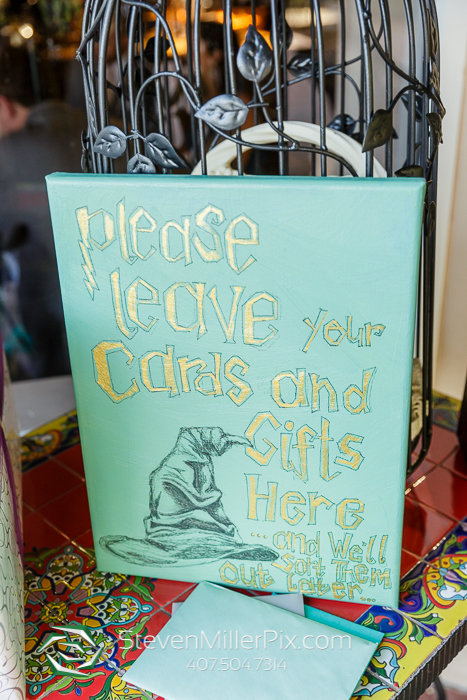 please
leave your
Cards and
Gifts
Here
...and We'll
Sort Them
Out Later...
StevenMillerPix.com
407.504.7314